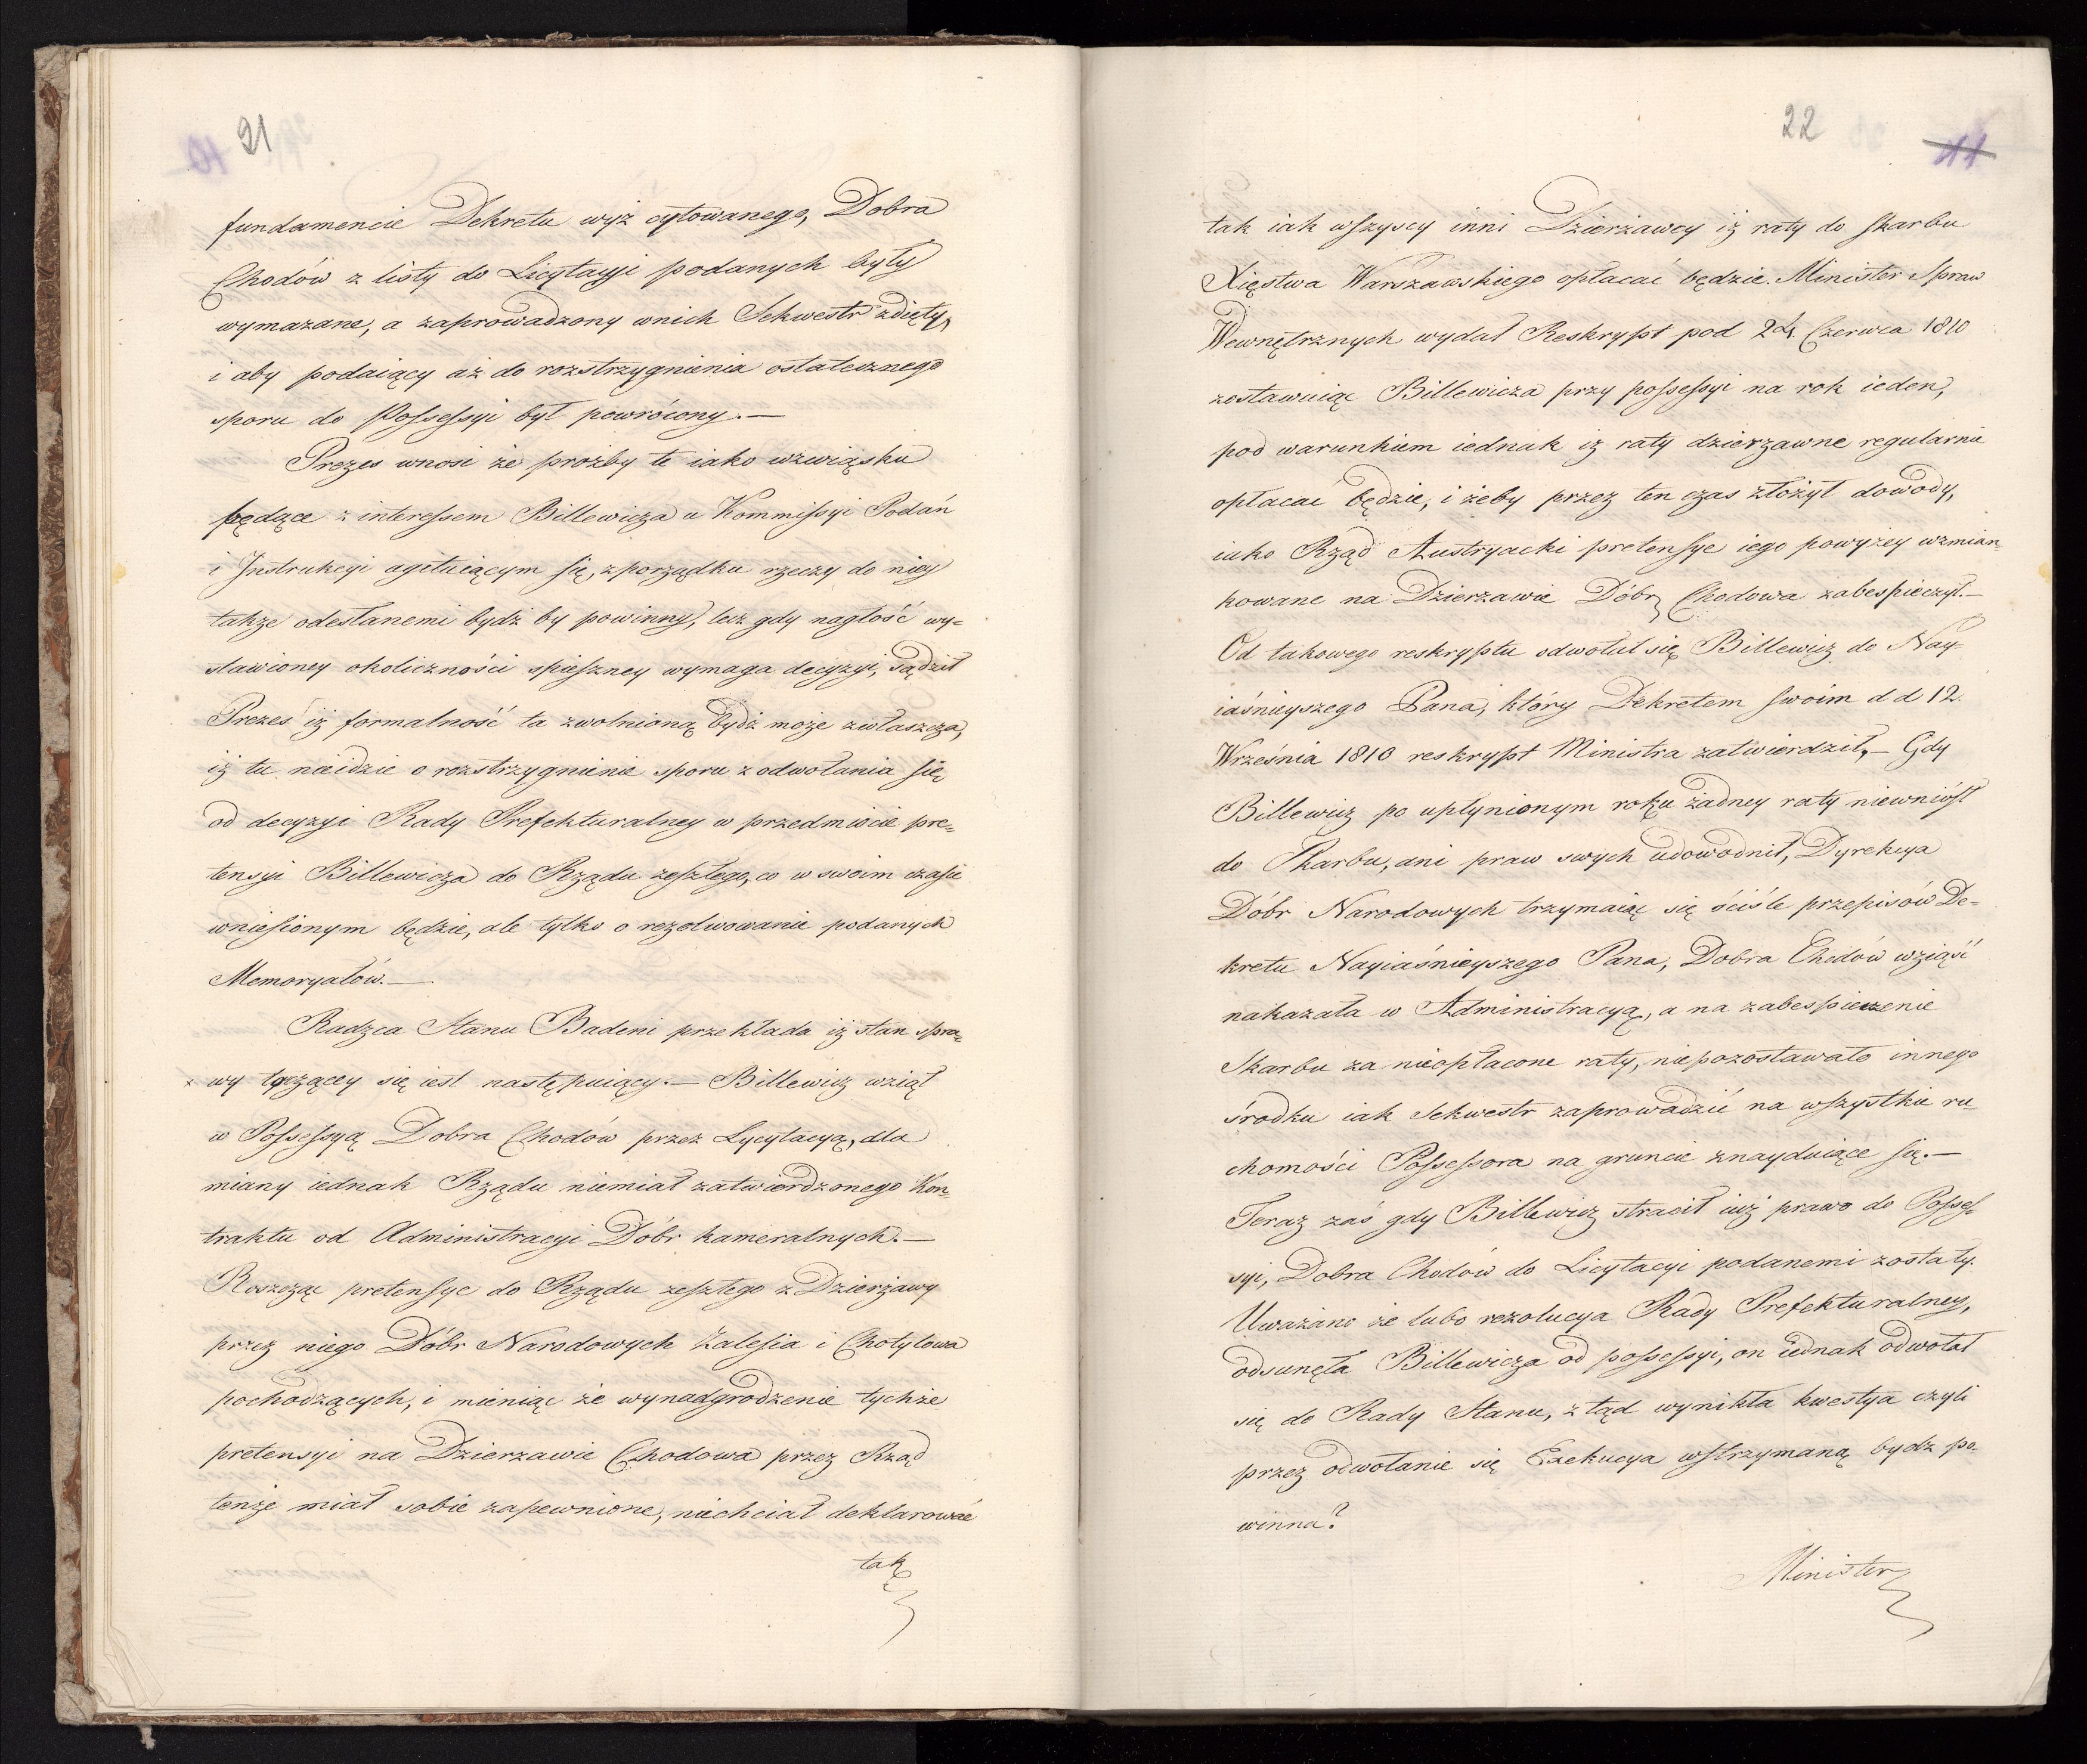 21
fundamencie Dekretu wyż cytowanego, Dobra
Chodów z listy do Licytacyi podanych były
wymazane, a zaprowadzony wnich Sekwestr zdięty,
i aby podaiący aż do rozstrzygnienia ostatecznego
sporu do Possessyi był powrócony.—
Prezes wnosi że proźby te iako wzwiąsku
będące z interessem Billewicza u Kommissyi Podań
i Instrukcyi agituiącym się, z porządku rzeczy do niey
także odesłanemi bydź by powinny, lecz gdy nagłość wy=
stawioney okoliczności spieszney wymaga decyzyi, sądził
Prezes iż formalność ta zwolnioną bydź może zwłaszcza,
iż tu nieidzie o rozstrzygnienie sporu z odwołania się
od decyzyi Rady Prefekturalney w przedmiocie pre=
tensyi Billewicza do Rządu zeszłego, co w swoim czasie
wniesionym będzie, ale tylko o rezolwowanie podanych
Memoryałów.—
Radzca Stanu Badeni przekłada iż stan spra=
x wy tyczącey się iest następuiący.— Billewicz wziął
w Possessyą Dobra Chodów przez Lycytacyą, dla
miany iednak Rządu niemiał zatwierdzonego Kon=
traktu od Administracyi Dóbr kameralnych.—
Roszcząc pretensye do Rządu zeszłego z Dzierżawy
przez niego Dóbr Narodowych Zalesia i Chotyłowa
pochodzących, i mieniąc że wynadgrodzenie tychże
pretensyi na Dzierzawie Chodowa przez Rząd
tenże miał sobie zapewnione, niechciał deklarować
tak
22
11
tak iak wszyscy inni Dzierżawcy iż raty do skarbu
Xięstwa Warszawskiego opłacać będzie. Minister Spraw
Wewnętrznych wydał Reskrypt pod 24. Czerwca 1810
zostawuiąc Billewicza przy possessyi na rok ieden,
pod warunkiem iednak iż raty dzierzawne regularnie
opłacać będzie, i żeby przez ten czas złożył dowody,
iako Rząd Austryacki pretensye iego powyżey wzmian=
kowane na Dzierzawie Dóbr Chodowa zabespieczył.—
Od takowego reskryptu odwołał się Billewicz do Nay=
iaśnieyszego Pana, który Dekretem swoim d d 12
Września 1810 reskrypt Ministra zatwierdził,— Gdy
Billewicz po upłynionym roku żadney raty niewniósł
do Skarbu, ani praw swych udowodnił, Dyrekcya
Dóbr Narodowych trzymaiąc się ściśle przepisów De=
kretu Nayiaśnieyszego Pana, Dobra Chodów wziąść
nakazała w Administracyą, a na zabespieczenie
Skarbu za nieopłacone raty, niepozostawało innego
środku iak Sekwestr zaprowadzić na wszystkie ru=
chomości Possessora na gruncie znayduiące się.—
Teraz zaś gdy Billewicz stracił iuż prawo do Posses=
syi, Dobra Chodów do Licytacyi podanemi zostały.
Uważano że lubo rezolucya Rady Prefekturalney,
odsunęła Billewicza od possessyi, on iednak odwołał
się do Rady Stanu, ztąd wynikła kwestya czyli
przez odwołanie się Exekucya wstrzymaną bydz po=
winna?
Minister